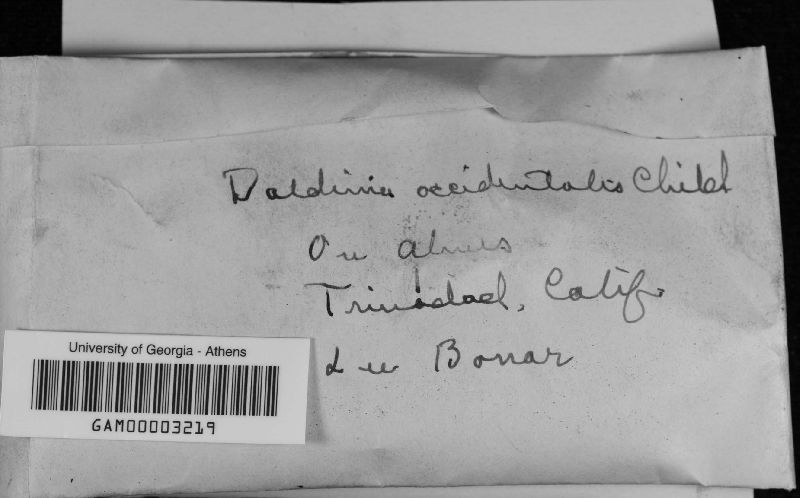 Daldinia occidentalis Child
On alnus
Trinidad, Calif.
Lee Bonar
University of Georgia - Athens
GAM00003219